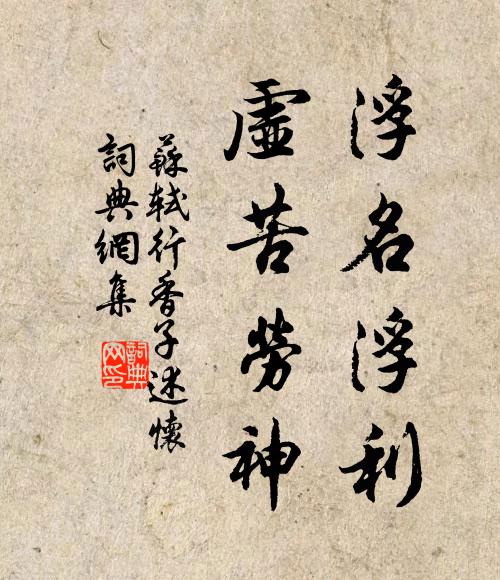 浮名浮利
虛苦勞神
蘇軾行香子述懷
詞典網集
詞典
网印